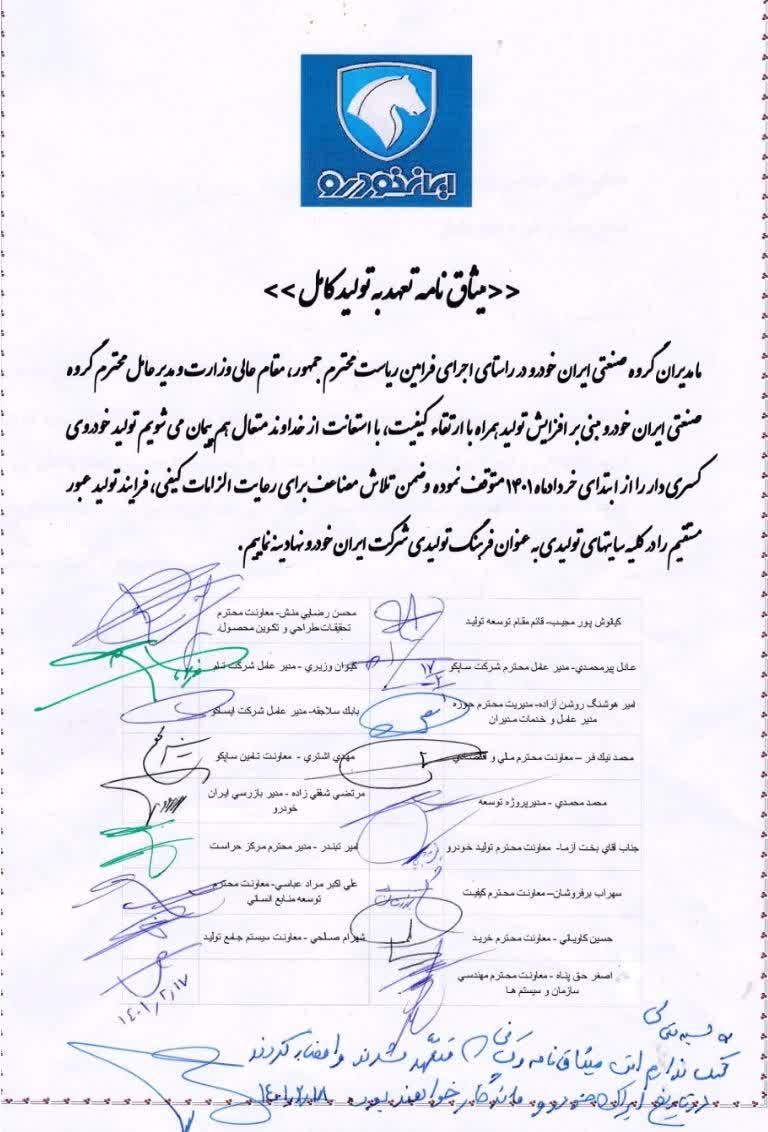 ایران خودرو
<<میثاق نامه تعهد به تولید کامل>>
ما مدیران گروه صنعتی ایران خودرو در راستای اجرای فرامین ریاست محترم جمهور، مقام عالی وزارت و مدیر عامل محترم گروه
صنعتی ایران خودرو مبنی بر افزایش تولید همراه با ارتقاء کیفیت، با استعانت از خداوند متعال هم پیمان می شویم تولید خودروی
کسری دار را از ابتدای خرداد ماه ۱۴۰۱ متوقف نموده و ضمن تلاش مضاعف برای رعایت الزامات کیفی، فرایند تولید عبور
مستقیم را در کلیه سایتهای تولیدی به عنوان فرهنگ تولیدی شرکت ایران خودرو نهادینه نماییم.
کیانوش پور مجیب- قائم مقام توسعه تولید
محسن رضایی منش- معاونت محترم
تحقیقات،طراحی و تکوین محصول.
عادل پیرمحمدی- مدیر عامل محترم شرکت ساپکو
۱۷
۲
کیوان وزیری - مدیر عامل شرکت تام
امیر هوشنگ روشن آزاده- مدیریت محترم حوزه
مدیر عامل و خدمات مدیران
بابک سلاجقه- مدیر عامل شرکت ایسکو
محمد نیک فر – معاونت محترم مالی و اقتصادی
مهدی اشتری - معاونت تامین ساپکو
محمد محمدی - مدیرپروژه توسعه
مرتضی شفقی زاده - مدیر بازرسی ایران
خودرو
جناب آقای بخت آزما- معاونت محترم تولید خودرو
امیر تبندر - مدیر محترم مرکز حراست
سهراب برفروشان– معاونت محترم کیفیت
علی اکبر مراد عباسی- معاونت محترم
توسعه منابع انسانی
حسین کاویانی - معاونت محترم خرید
شهرام صالحی - معاونت سیستم جامع تولید
اصغر حق پناه - معاونت محترم مهندسی
سازمان و سیستم ها
۱۴۰۱/۲/۱۷
شک ندارم این میثاق نامه و کسانی متعهد شدند و امضاء کردند
در تاریخ ایران خودرو ماندگار خواهند بود ۱۴۰۱/۲/۱۸